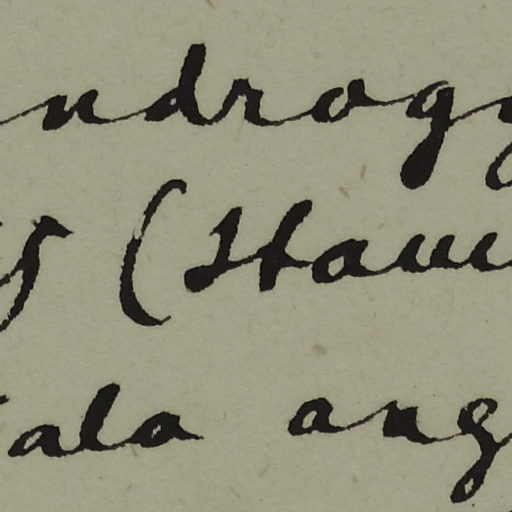 ndrog
(Stau
ala ang